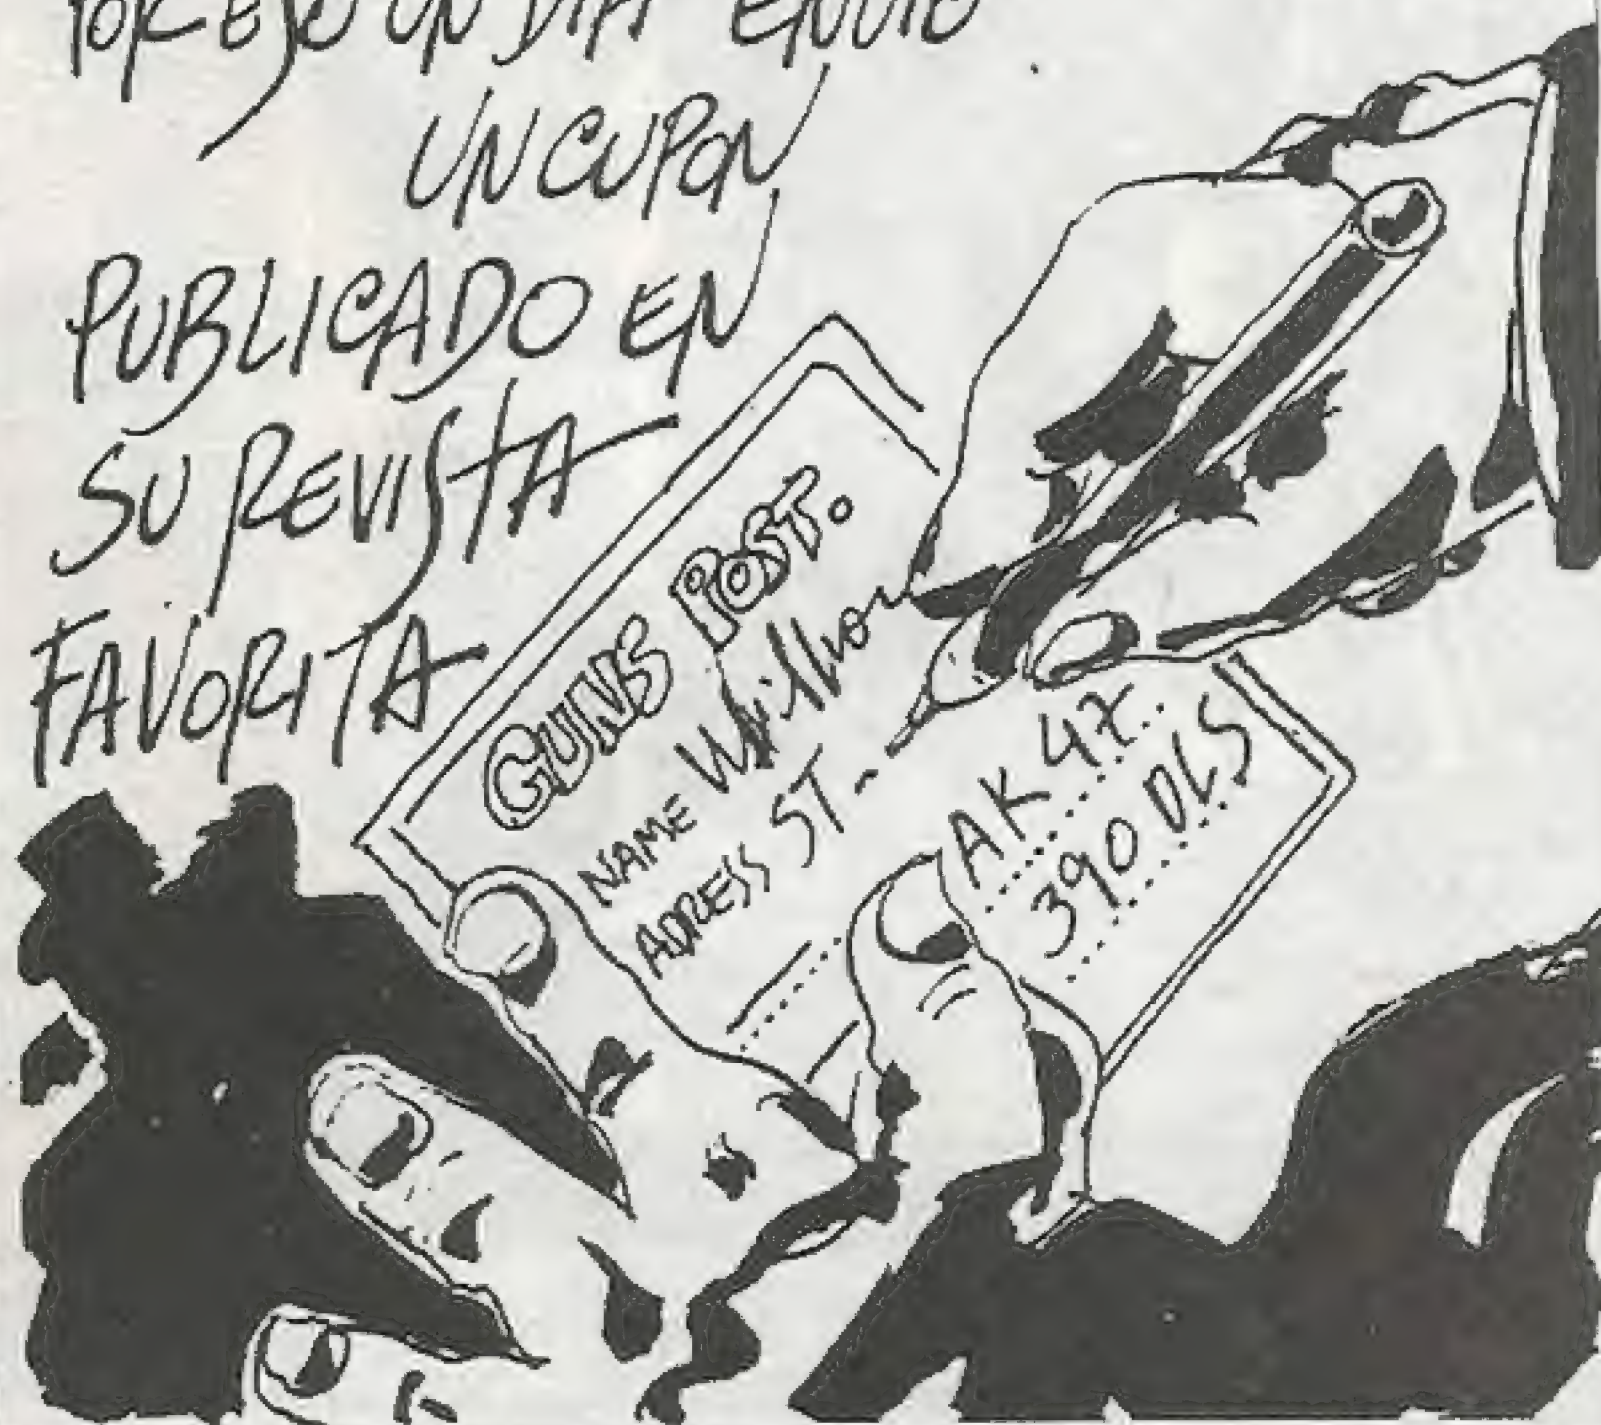 POR ESO UN DIA ENVIO
UN CUPON
PUBLICADO EN
SU REVISTA
FAVORITA
GUNS POST.
NAME
ADRESS ST
AK 47
390 DLS